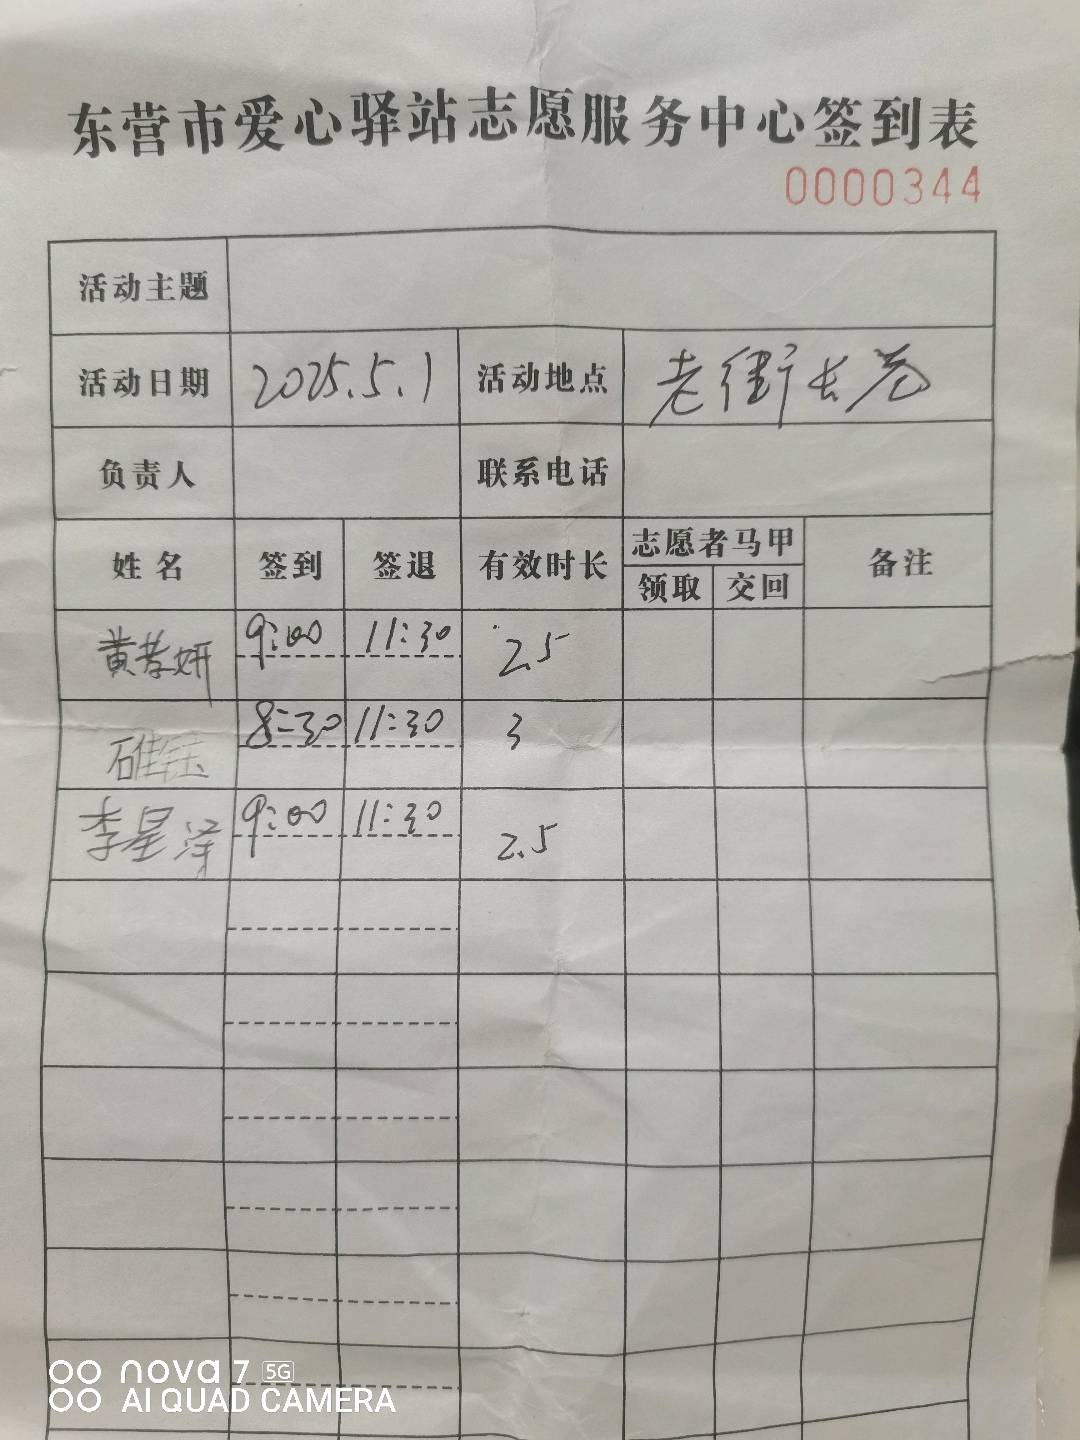 东营市爱心驿站志愿服务中心签到表
0000344
活动主题
活动日期 2025.5.1 活动地点 老街长巷
负责人 联系电话
姓名 签到 签退 有效时长 志愿者马甲 备注
领取 交回
黄孝妍 9:00 11:30 2.5
8:30 11:30 3
李星泽 9:00 11:30 2.5
nova 7 5G
AI QUAD CAMERA